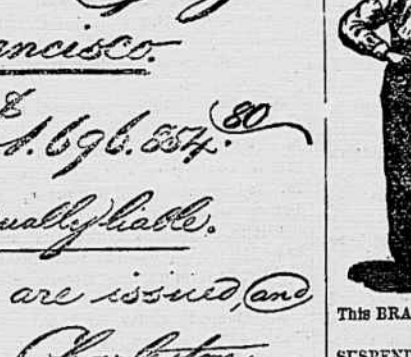 ncisco.
$1.696.854.80
ually liable.
are issued, and
This BRA
SUSPEND